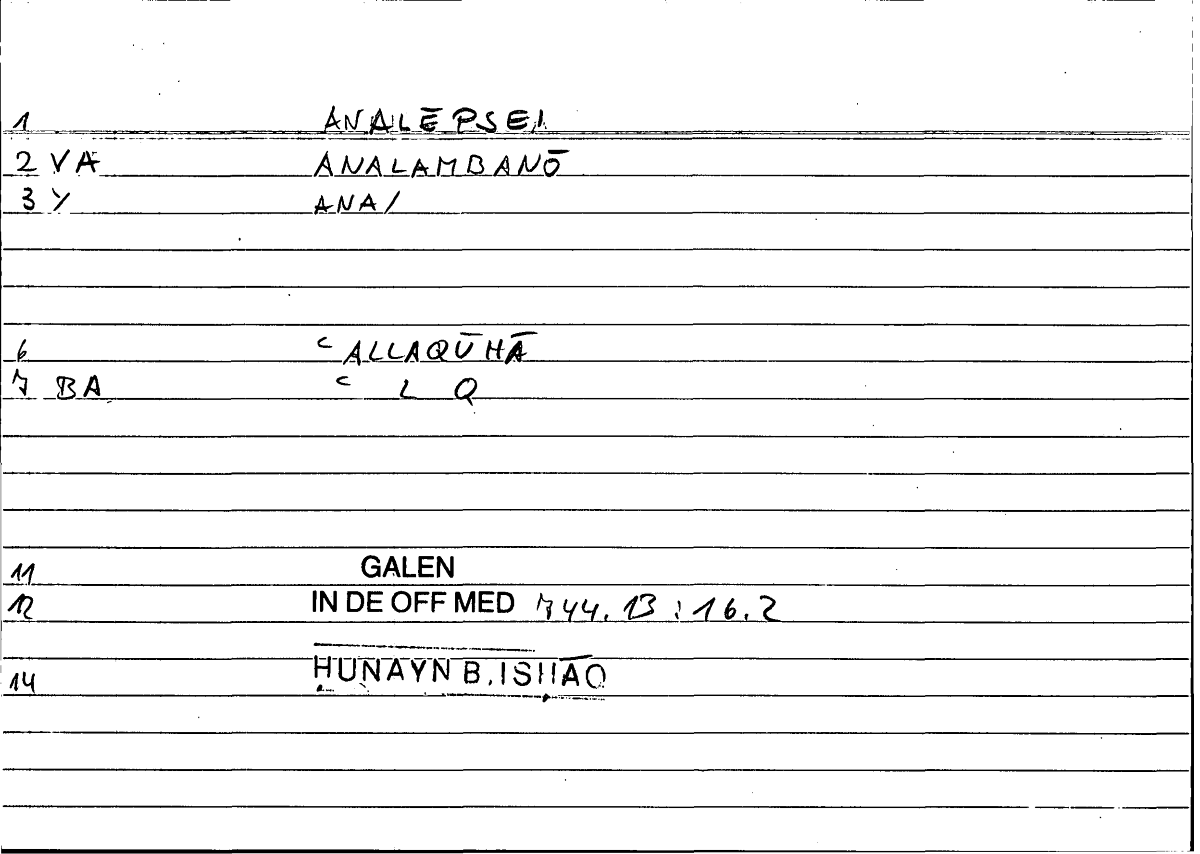 1 ANALĒPSEI
2 VA ANALAMBANŌ
3 Y ANA/
6 ʿALLAQŪHĀ
7 BA ʿ L Q
11 GALEN
12 IN DE OFF MED 744.13 : 16.2
14 ḤUNAYN B. ISḤĀQ